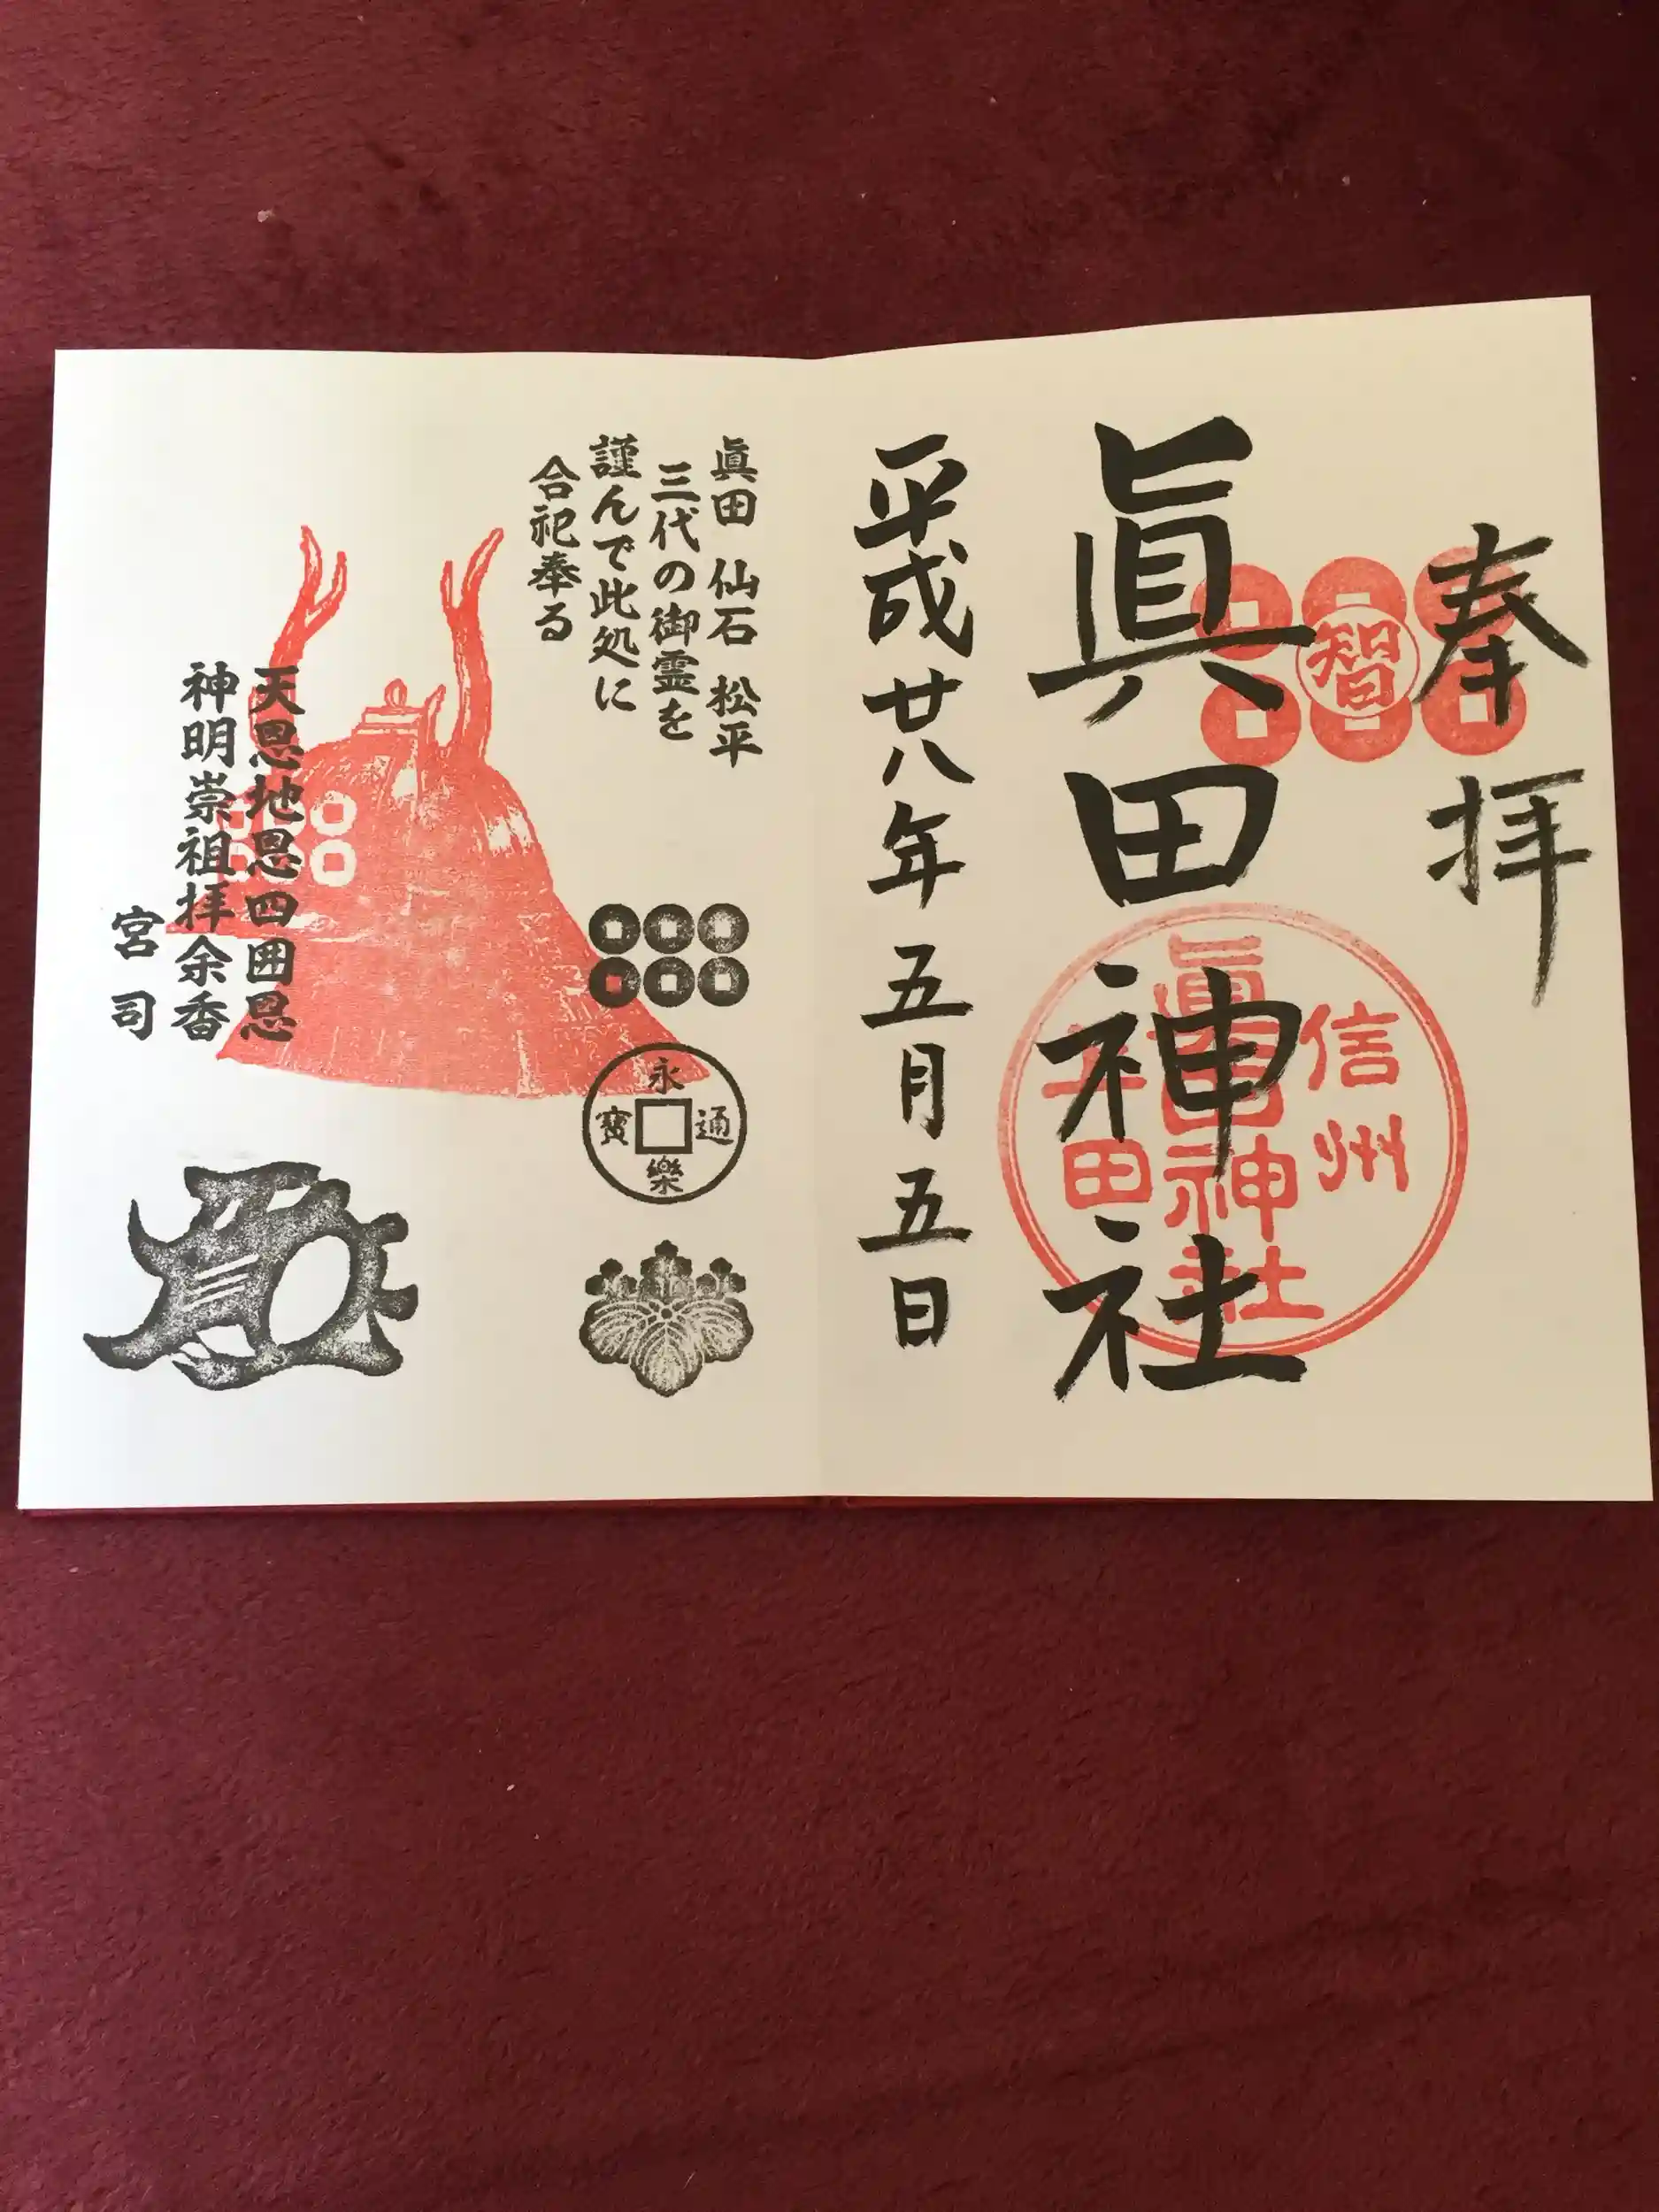 奉拝
智
眞田神社
信州
眞田神社
上田
平成廿八年五月五日
眞田 仙石 松平
三代の御霊を
謹んで此処に
合祀奉る
永樂通寳
天恩地恩四囲恩
神明崇祖拝余香
宮司